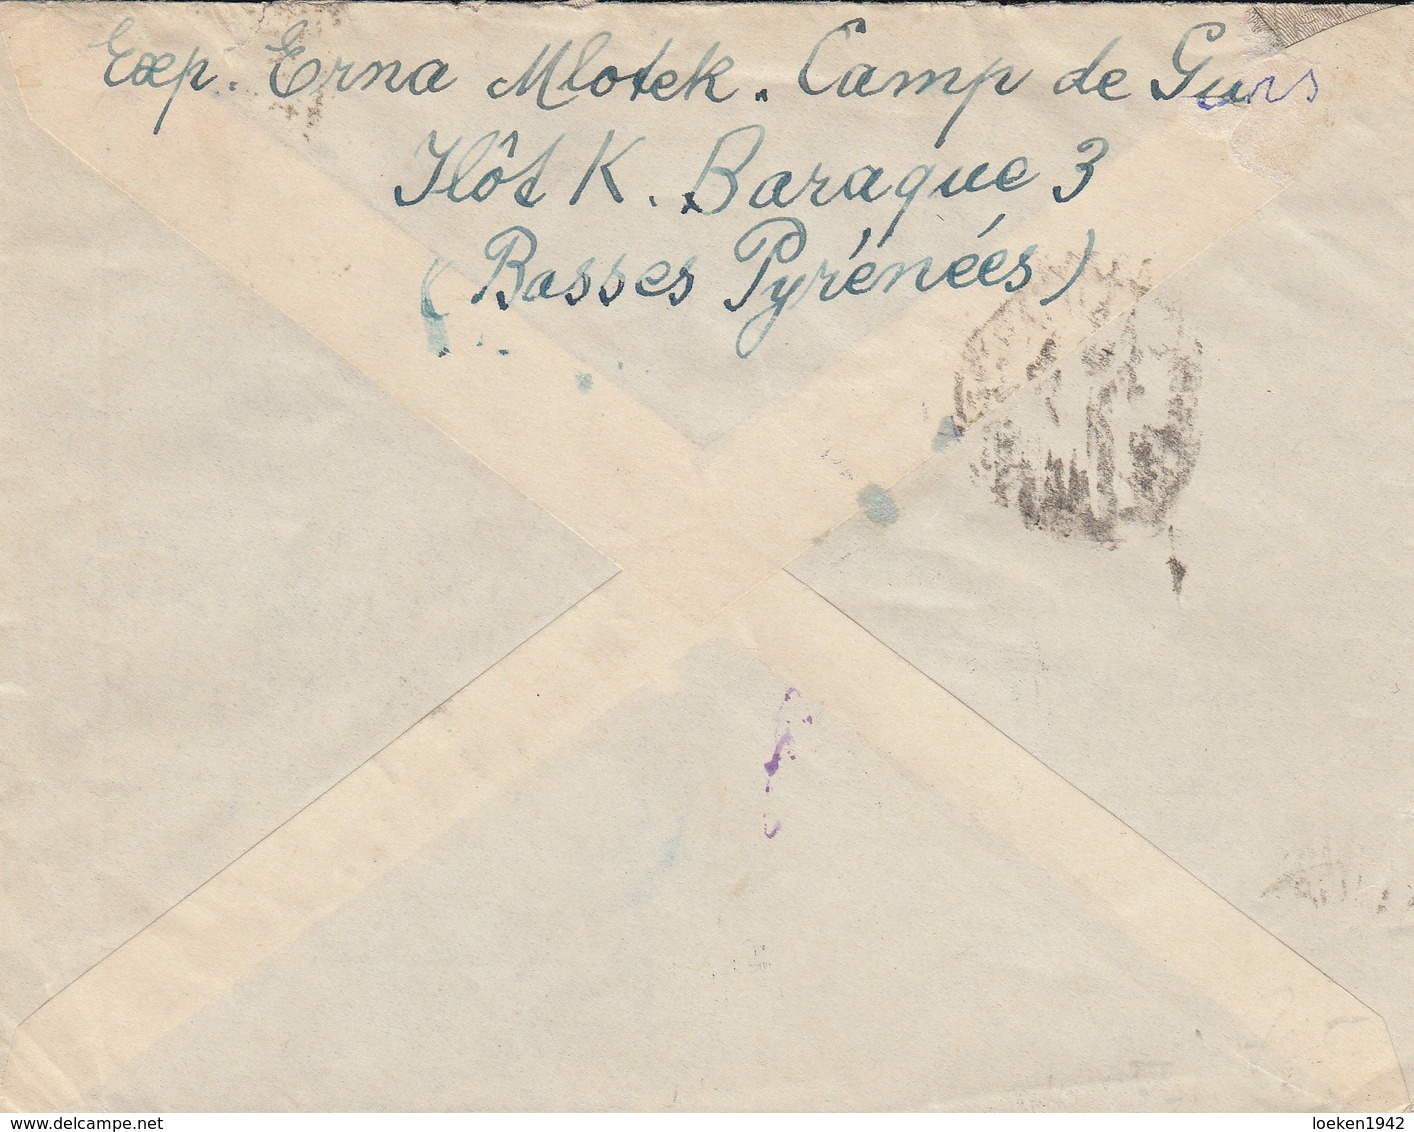 Exp. Erna Mlotek. Camp de Gurs
Ilôt K. Baraque 3
(Basses Pyrénées)
delcampe.net
loeken1942